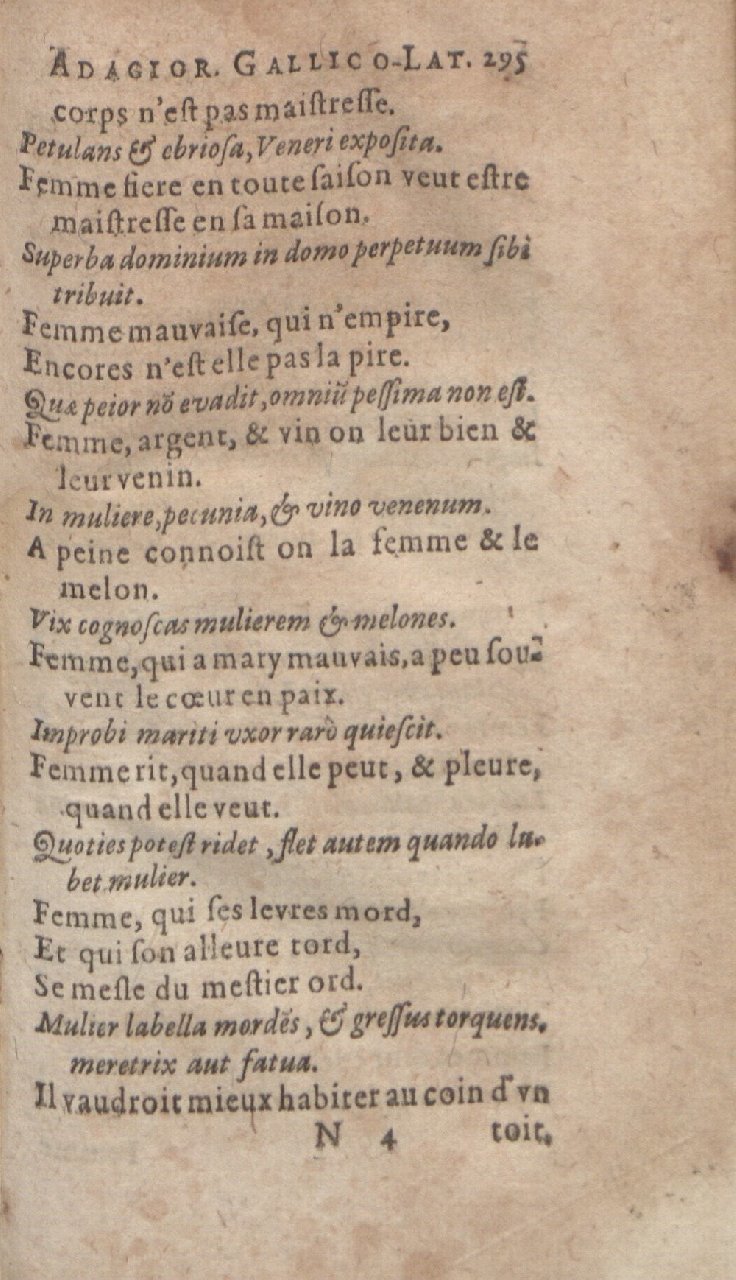 ADAGIOR. GALLICO-LAT. 295
corps n'eſt pas maiſtreſſe.
Petulans & ebrioſa, Veneri expoſita.
Femme fiere en toute ſaiſon veut eſtre
maiſtreſſe en ſa maiſon.
Superba dominium in domo perpetuum ſibi
tribuit.
Femme mauvaiſe, qui n'empire,
Encores n'eſt elle pas la pire.
Quæ peior nõ evadit, omniũ peſſima non eſt.
Femme, argent, & vin on leur bien &
leur venin.
In muliere, pecunia, & vino venenum.
A peine connoiſt on la femme & le
melon.
Vix cognoſcas mulierem & melones.
Femme, qui a mary mauvais, a peu ſou-
vent le cœur en paix.
Improbi mariti vxor rarò quieſcit.
Femme rit, quand elle peut, & pleure,
quand elle veut.
Quoties poteſt ridet, flet autem quando lu-
bet mulier.
Femme, qui ſes levres mord,
Et qui ſon alleure tord,
Se meſle du meſtier ord.
Mulier labella mordẽs, & greſſus torquens,
meretrix aut fatua.
Il vaudroit mieux habiter au coin d'vn
N 4 toit,